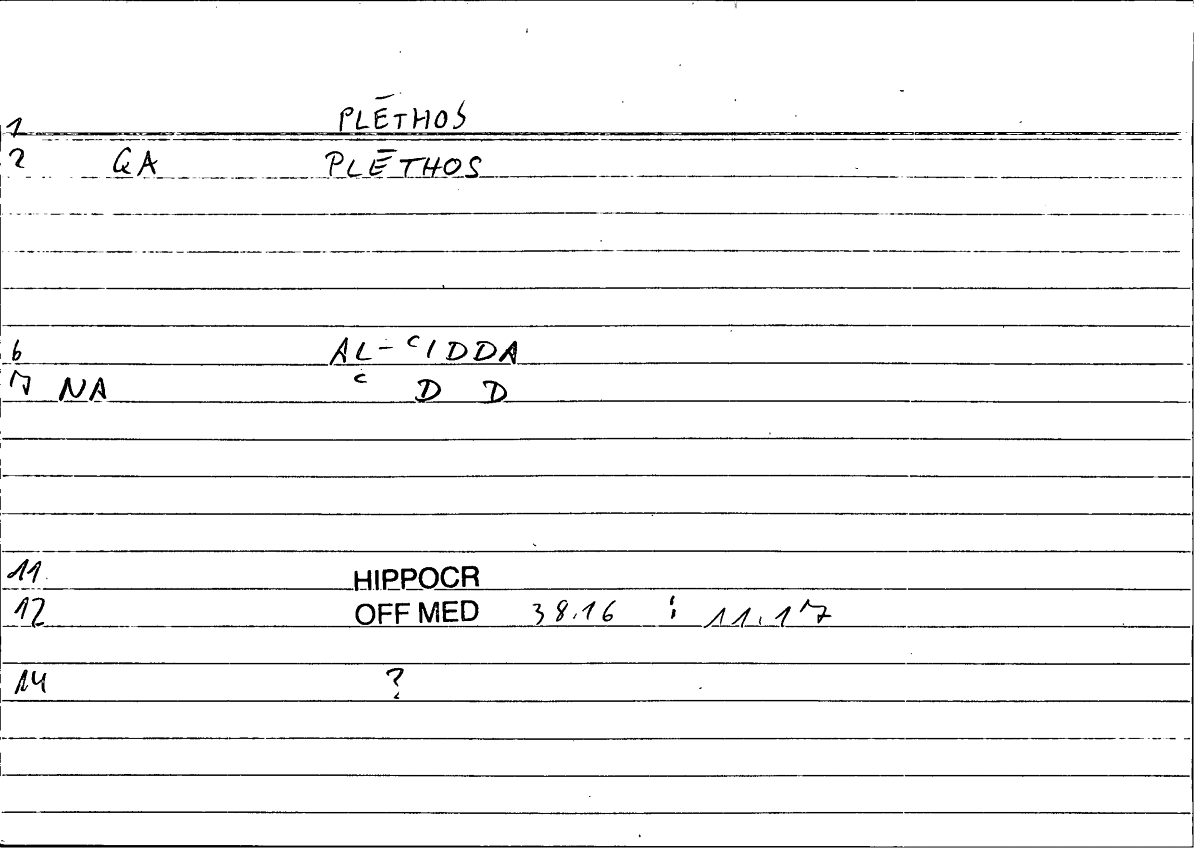 1 PLĒTHOS
2 QA PLĒTHOS
6 AL-ʿIDDA
7 NA ʿ D D
11 HIPPOCR
12 OFF MED 38.16 ; 11.17
14 ?